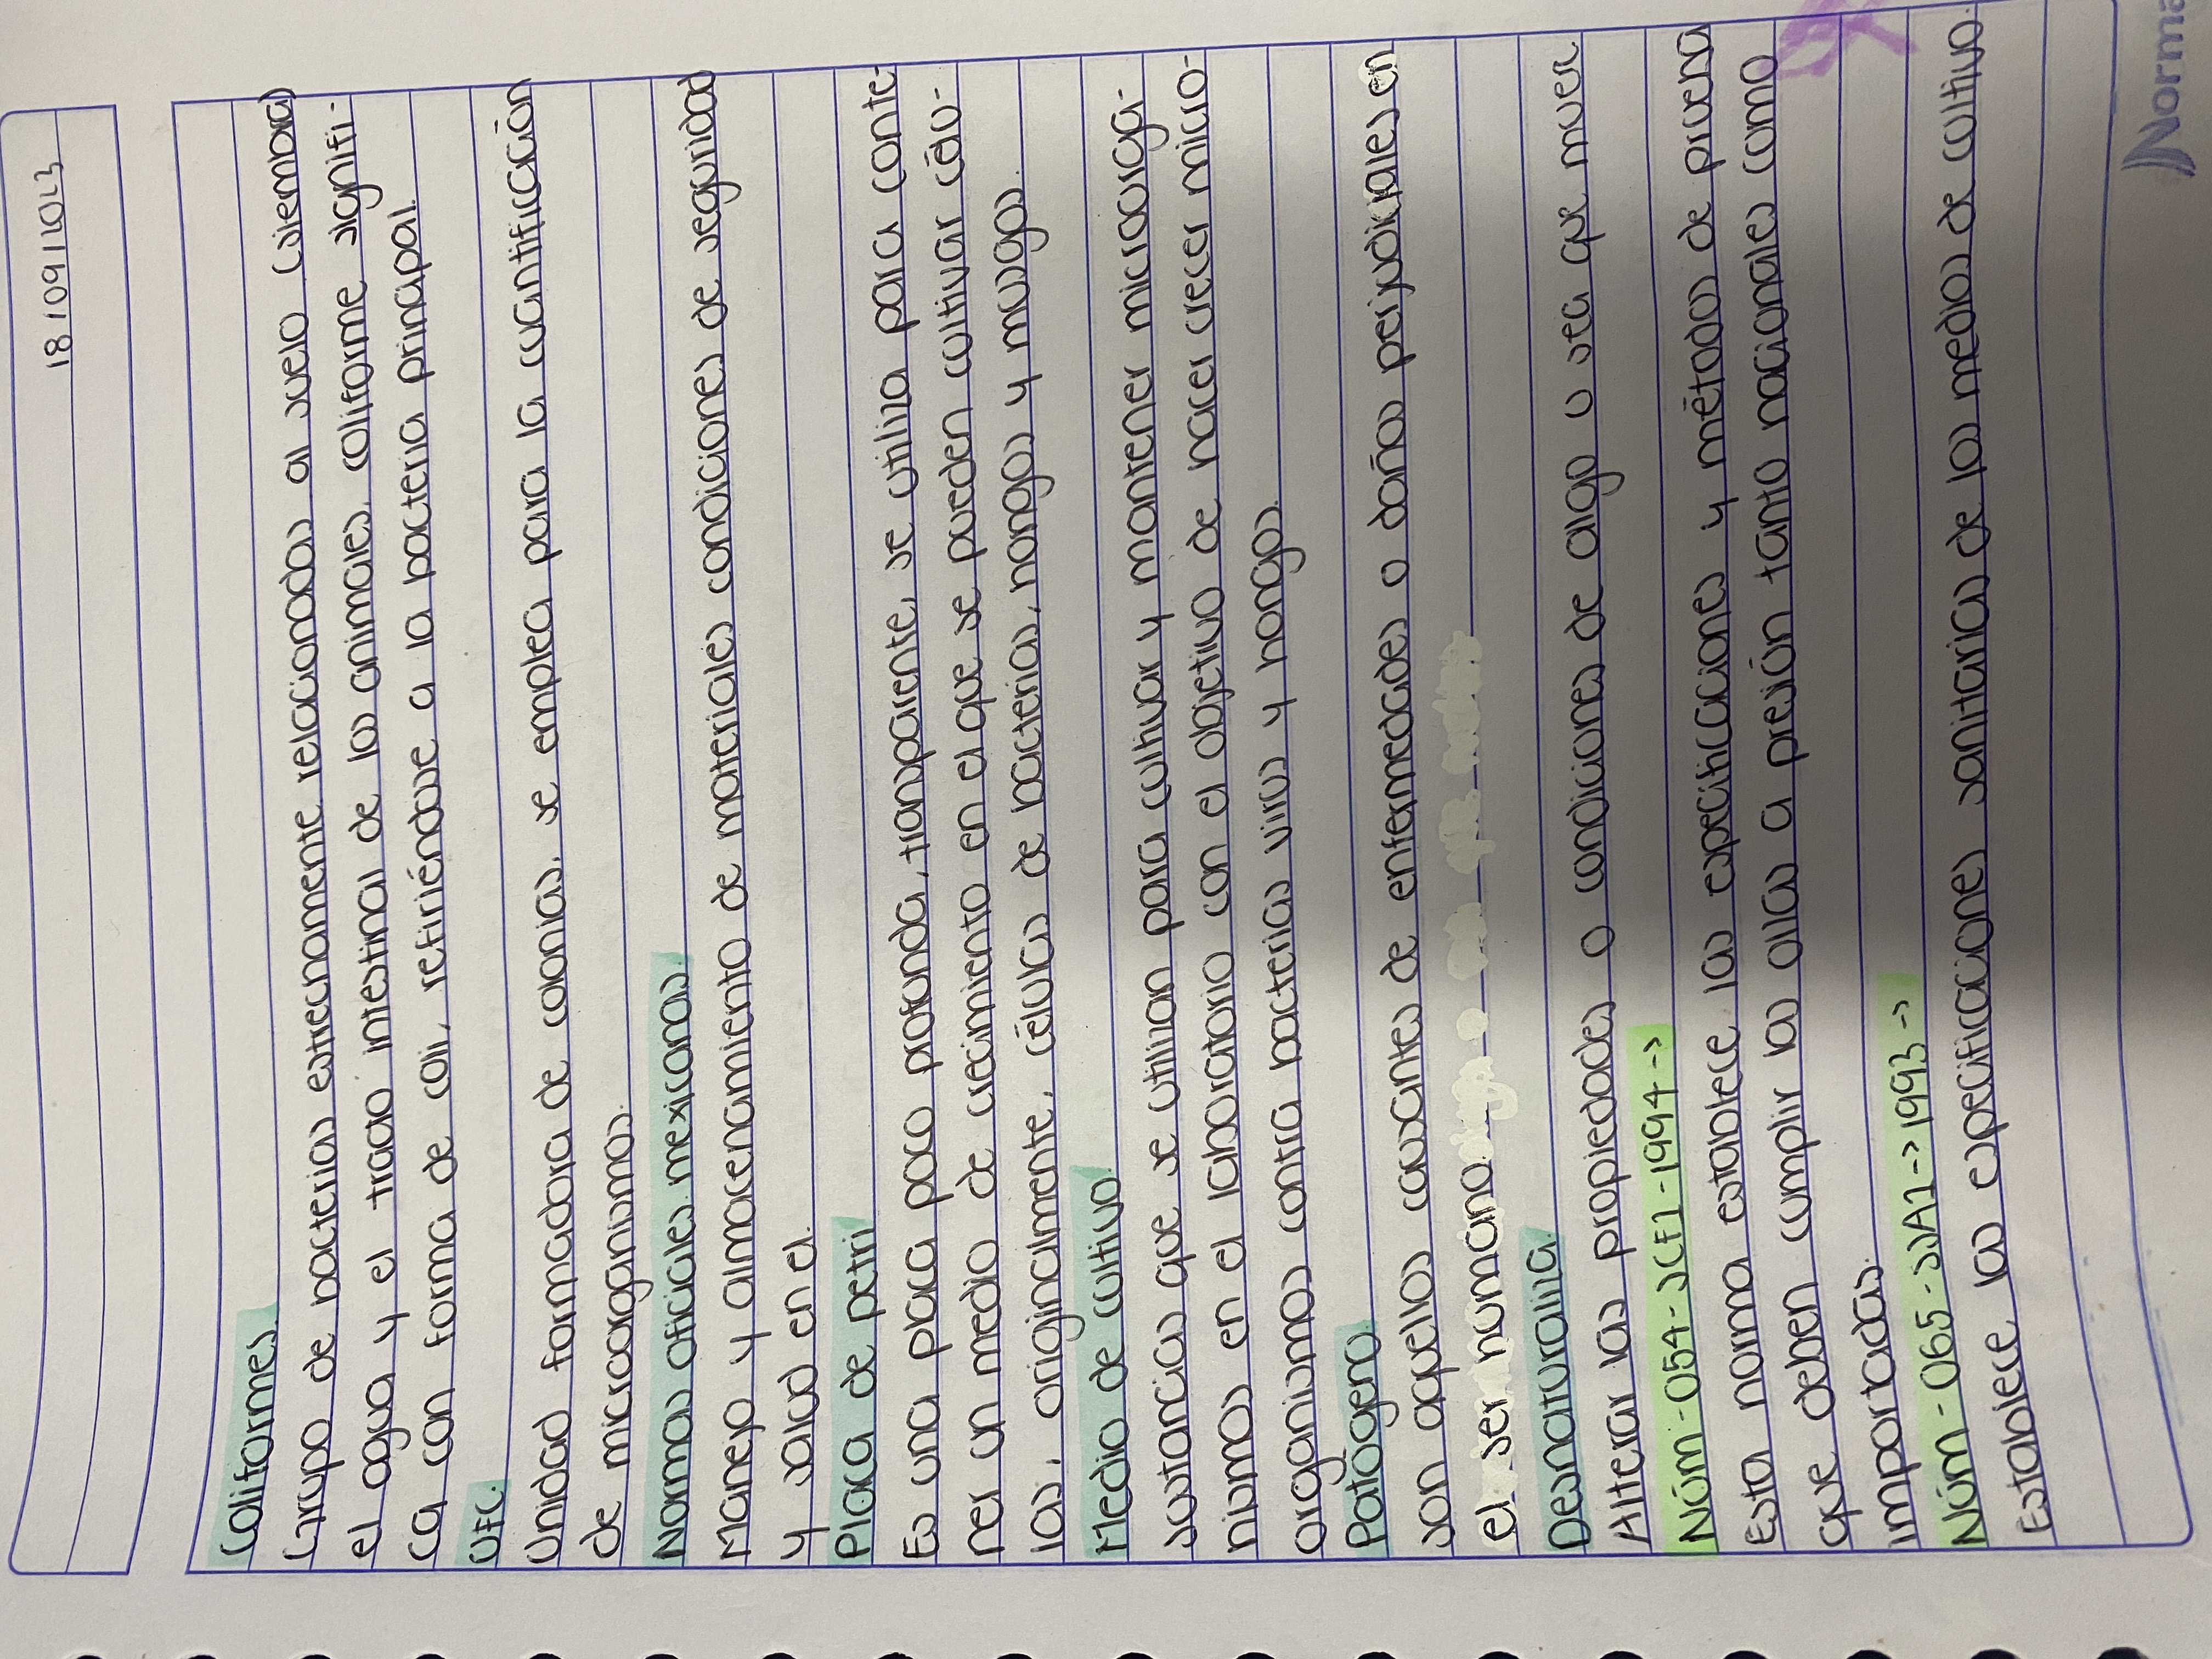 18/09/2023
Coliformes.
Grupo de bacterias estrechamente relacionadas al suelo (siembra)
el agua y el tracto intestinal de los animales, coliforme signifi-
ca con forma de coli, refiriéndose a la bacteria principal.
UFC.
Unidad formadora de colonias, se emplea para la cuantificación
de microorganismos.
Normas oficiales mexicanas.
Manejo y almacenamiento de materiales condiciones de seguridad
y salud en el.
Placa de petri
Es una placa poco profunda, transparente, se utiliza para conte-
ner un medio de crecimiento en el que se pueden cultivar célu-
las, originalmente, células de bacterias, hongos y musgos.
Medio de cultivo.
Sustancias que se utilizan para cultivar y mantener microorga-
nismos en el laboratorio con el objetivo de hacer crecer micro-
organismos contra bacterias virus y hongos.
Patógeno.
Son aquellos causantes de enfermedades o daños perjudiciales en
el ser humano.
Desnaturaliza.
Alterar las propiedades o condiciones de algo o sea que muer
Núm-054-SCFI-1994->
Esta norma establece las especificaciones y métodos de prueba
que deben cumplir las ollas a presión tanto nacionales como
importadas.
Núm-065-SSA1->1993->
Establece las especificaciones sanitarias de los medios de cultivo.
Norma